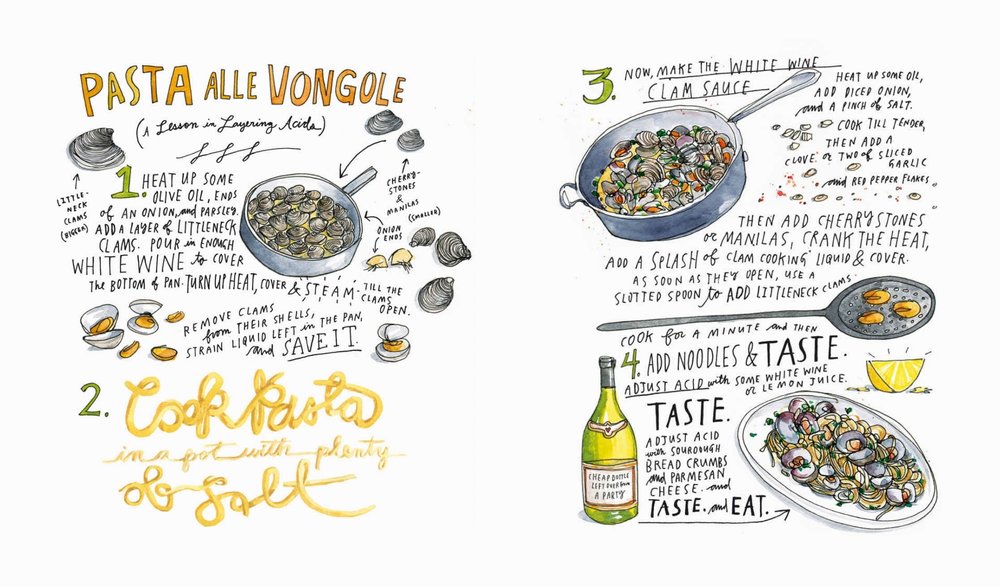 PASTA ALLE VONGOLE
(A Lesson in Layering Acids)
LITTLE-
NECK
CLAMS
(BIGGER)
CHERRY-
STONES
&
MANILAS
(SMALLER)
ONION
ENDS
1. HEAT UP SOME
OLIVE OIL, ENDS
OF AN ONION, and PARSLEY.
ADD A LAYER OF LITTLENECK
CLAMS. POUR in ENOUGH
WHITE WINE to COVER
THE BOTTOM OF PAN. TURN UP HEAT, COVER & STEAM TILL THE
CLAMS
OPEN.
REMOVE CLAMS
from THEIR SHELLS,
STRAIN LIQUID LEFT in THE PAN,
and SAVE IT.
2. Cook Pasta
in a pot with plenty
of Salt
3. NOW, MAKE THE WHITE WINE
CLAM SAUCE
HEAT UP SOME OIL,
ADD DICED ONION,
and A PINCH of SALT.
COOK TILL TENDER,
THEN ADD A
CLOVE or TWO of SLICED
GARLIC
and RED PEPPER FLAKES
THEN ADD CHERRYSTONES
or MANILAS, CRANK THE HEAT,
ADD A SPLASH of CLAM COOKING LIQUID & COVER.
AS SOON AS THEY OPEN, USE A
SLOTTED SPOON to ADD LITTLENECK CLAMS.
COOK for A MINUTE and THEN
4. ADD NOODLES & TASTE.
ADJUST ACID with SOME WHITE WINE
or LEMON JUICE.
TASTE.
ADJUST ACID
with SOURDOUGH
BREAD CRUMBS
and PARMESAN
CHEESE. and
TASTE. and EAT.
CHEAP BOTTLE
LEFT OVER from
A PARTY